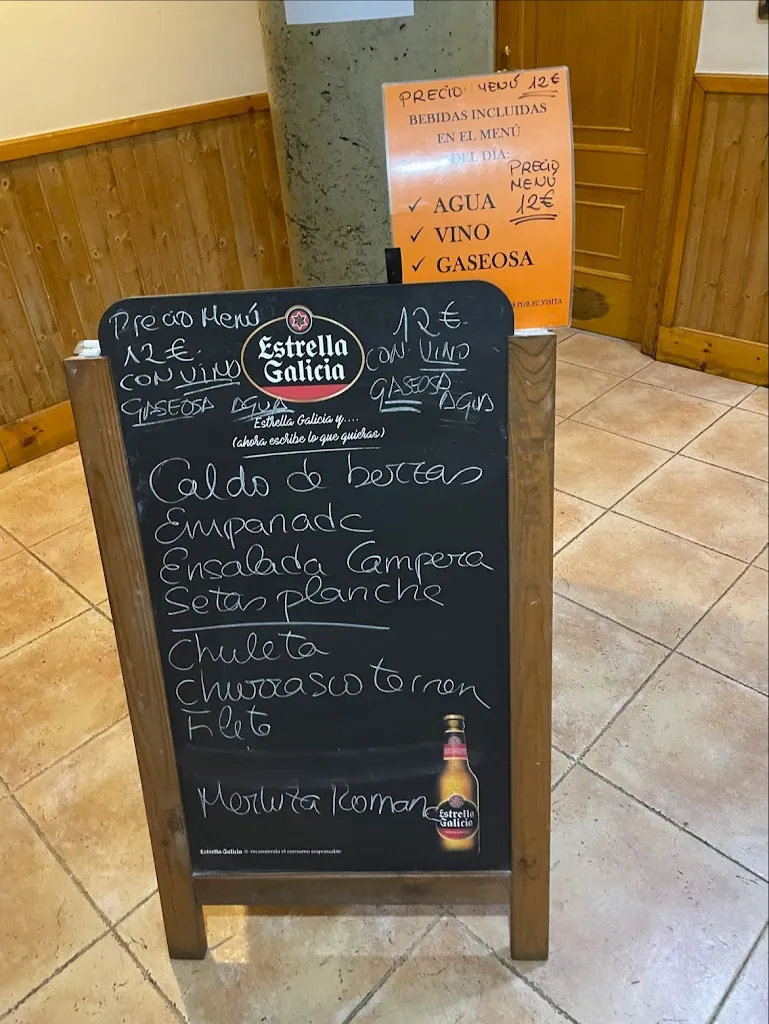 PRECIO MENÚ 12€
BEBIDAS INCLUIDAS
EN EL MENÚ
DEL DÍA:
PRECIO
MENÚ
12€
✓ AGUA
✓ VINO
✓ GASEOSA
POR SU VISITA
Precio Menú
12€.
CON VINO
GASEOSA AGUA
Estrella
Galicia
12€.
CON VINO
GASEOSA
AGUA
Estrella Galicia y....
(ahora escribe lo que quieras)
Caldo de berzas
Empanada
Ensalada Campera
Setas planche
Chuleta
Churrasco ternen
Filete
Merluza Romana
Estrella
Galicia
Estrella Galicia recomienda el consumo responsable